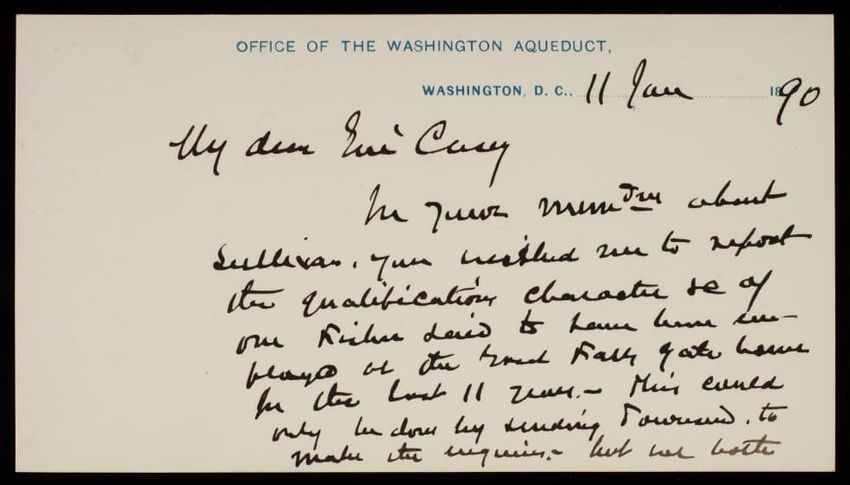 OFFICE OF THE WASHINGTON AQUEDUCT,
WASHINGTON, D. C., 11 Jan 1890
My dear Genl Casey
In your memdm about
Sullivan, you wished me to report
the qualifications character &c of
one Fisher said to have been em-
ployed at the Great Falls gate house
for the last 11 years.- This could
only be done by sending Townsend, to
make the inquiries.- but we both